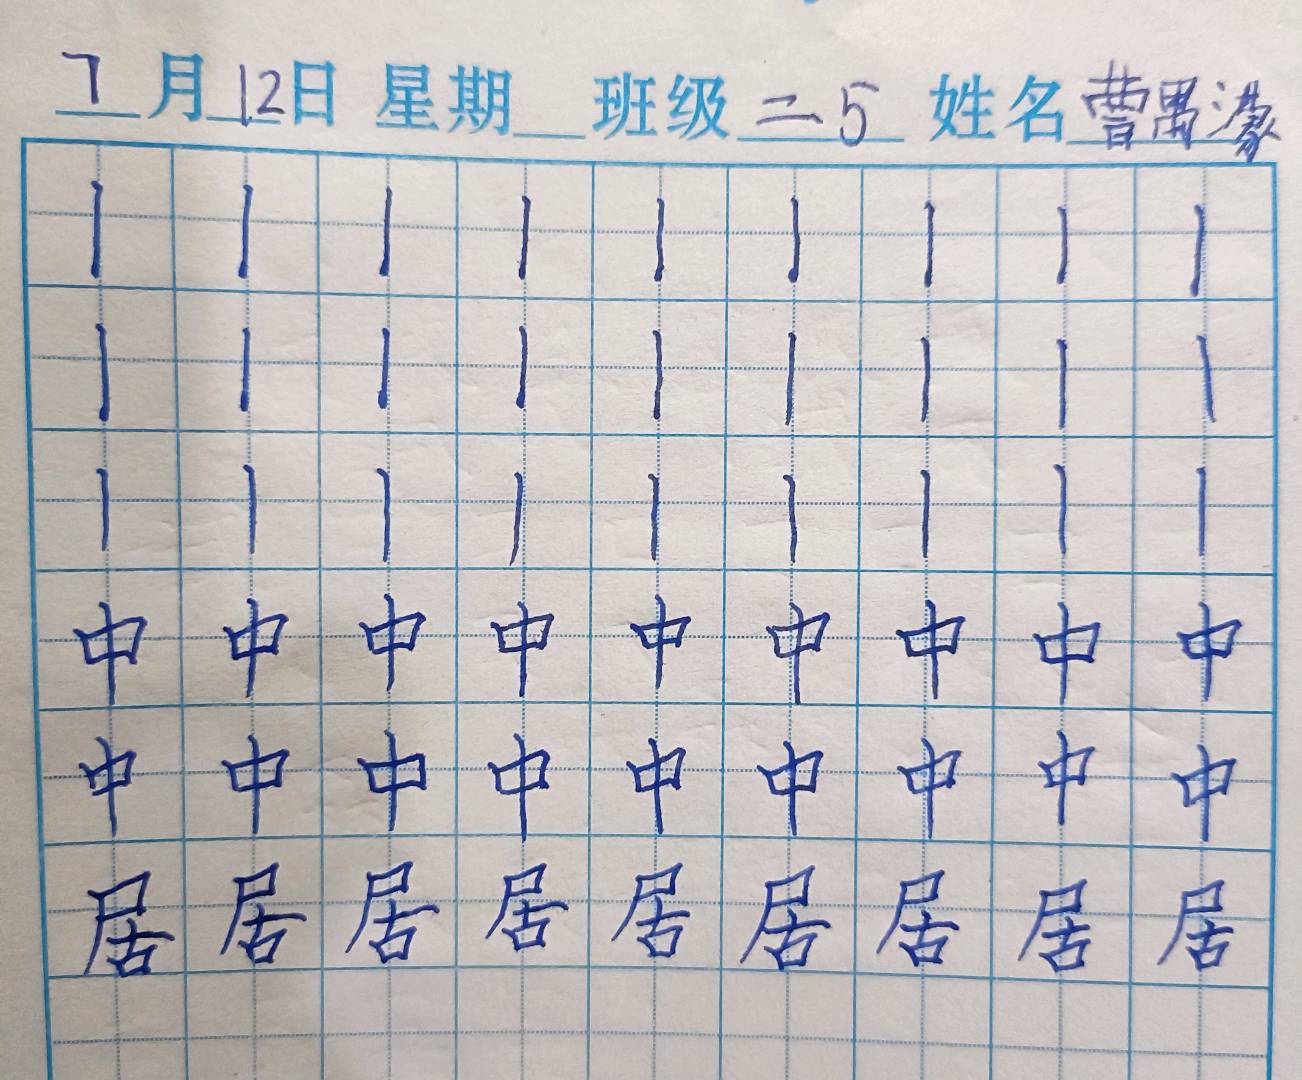 7月12日 星期 班级二5 姓名曹禺濛
丨丨丨丨丨丨丨丨丨
丨丨丨丨丨丨丨丨丨
丨丨丨丨丨丨丨丨丨
中中中中中中中中中
中中中中中中中中中
居居居居居居居居居